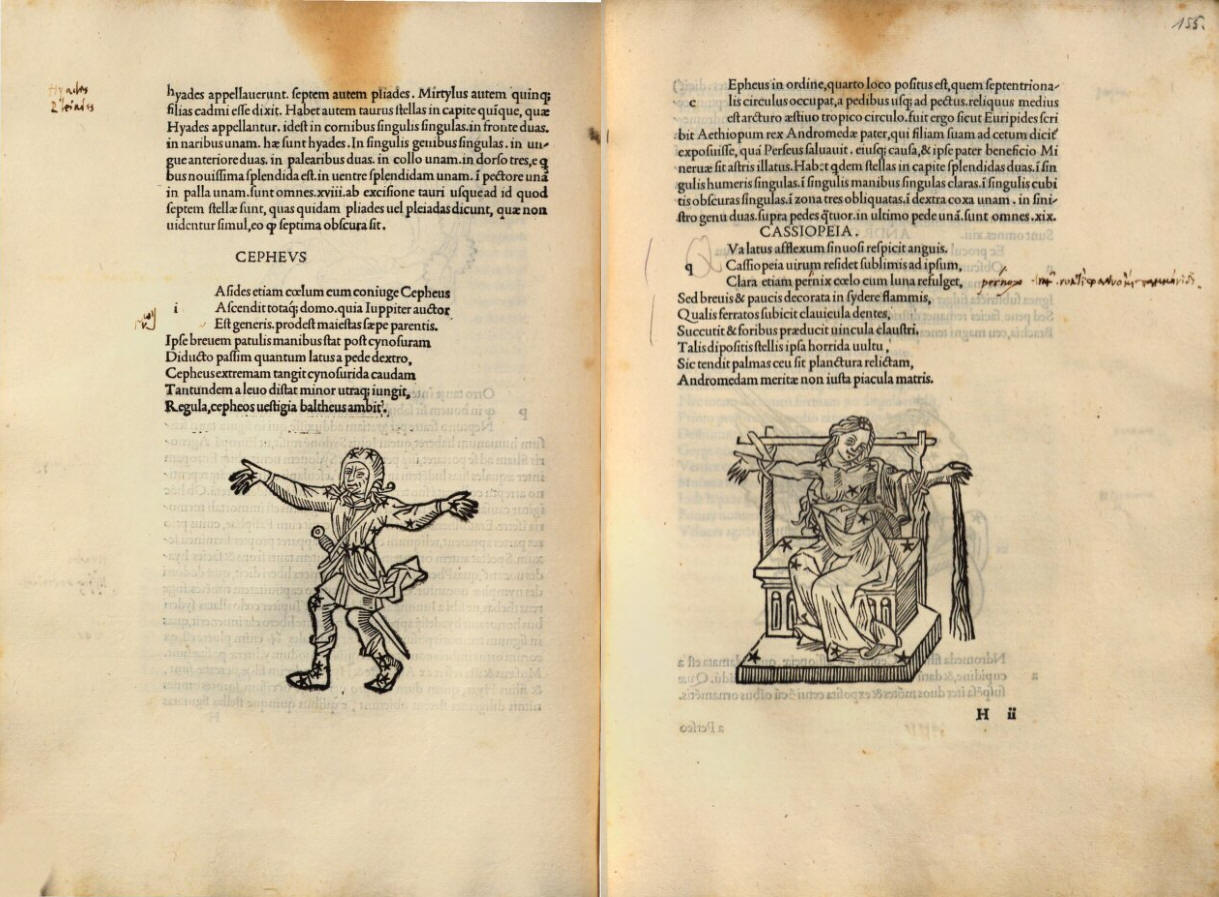 Hyades
hyades appellauerunt. septem autem pliades. Mirtylus autem quinq;
filias cadmi esse dixit. Habet autem taurus stellas in capite quīque, quæ
Hyades appellantur. idest in cornibus singulis singulas. in fronte duas.
in naribus unam. hæ sunt hyades. In singulis genibus singulas. in un-
gue anteriore duas. in palearibus duas. in collo unam. in dorso tres, e q
bus nouissima splendida est. in uentre splendidam unam. ī pectore unā
in palla unam. sunt omnes. xviii. ab excisione tauri usque ad id quod
septem stellæ sunt, quas quidam pliades uel pleiadas dicunt, quæ non
uidentur simul, eo ꝙ septima obscura sit.
CEPHEVS
Asides etiam cœlum cum coniuge Cepheus
i Ascendit totaq; domo. quia Iuppiter auctor
Est generis. prodest maiestas sæpe parentis.
Ipse breuem patulis manibus stat post cynosuram
Diducto passim quantum latus a pede dextro,
Cepheus extremam tangit cynosurida caudam
Tantundem a leuo distat minor utraq; iungit,
Regula, cepheos uestigia baltheus ambit.
155.
Epheus in ordine, quarto loco positus est, quem septentriona-
c lis circulus occupat, a pedibus usq; ad pectus. reliquus medius
est arcturo æstiuo tropico circulo. fuit ergo sicut Euripides scri
bit Aethiopum rex Andromedæ pater, qui filiam suam ad cetum dicit
exposuisse, quā Perseus saluauit. eiusq; causa, & ipse pater beneficio Mi
neruæ sit astris illatus. Habet qdem stellas in capite splendidas duas. ī sin
gulis humeris singulas. ī singulis manibus singulas claras. ī singulis cubi
tis obscuras singulas. ī zona tres obliquatas. ī dextra coxa unam. in sini-
stro genu duas. supra pedes q̄tuor. in ultimo pede unā. sunt omnes. xix.
CASSIOPEIA.
Va latus afflexum sinuosi respicit anguis.
q Cassiopeia uirum residet sublimis ad ipsum,
Clara etiam pernix cœlo cum luna refulget,
Sed breuis & paucis decorata in sydere flammis,
Qualis ferratos subicit clauicula dentes,
Succutit & foribus præducit uincula claustri.
Talis dipositis stellis ipsa horrida uultu,
Sic tendit palmas ceu sit planctura relictam,
Andromedam meritæ non iusta piacula matris.
H ii